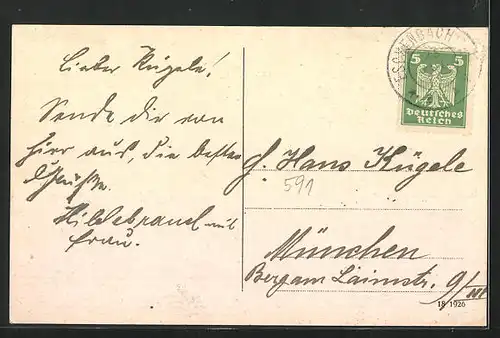 Lieber Kügele!
Sende dir von
hier aus, die besten
Grüße.
Hildebrand mit
Frau.
ESCHENBACH
5 5
Deutsches
Reich
H. Hans Kügele
591
München
Berg am Laimstr. 9/III
18 1926